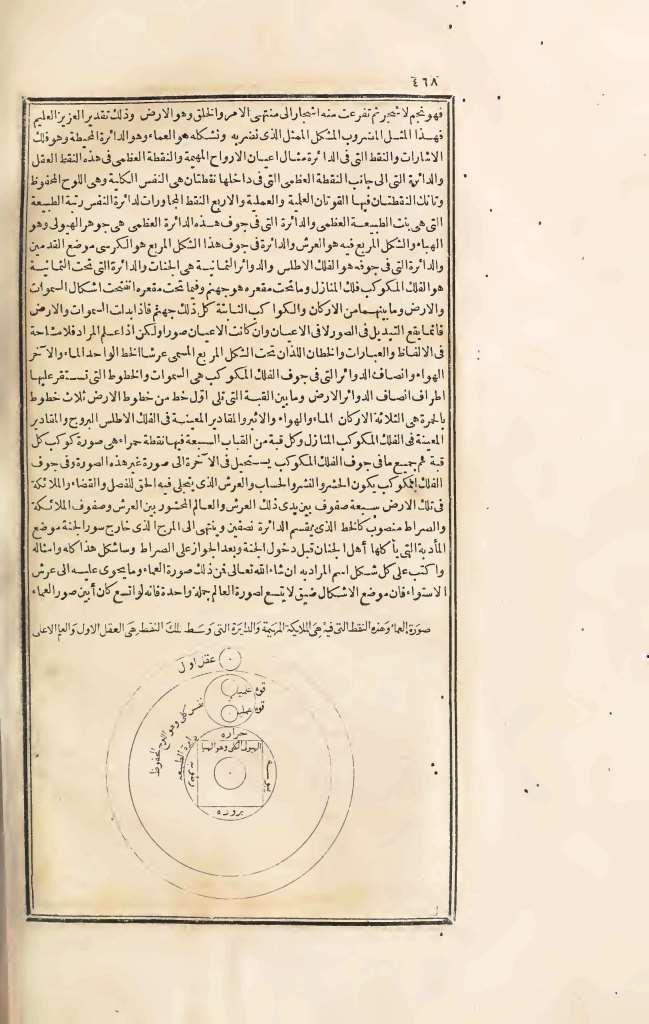 ٤٦٨
فهو نجم لا شجر ثم تفرعت منه اشجار الى منتهى الامر والخلق وهو الارض وذلك تقدير العزيز العليم
فهذا المثل المضروب المشكل الممثل الذى نضربه ونشكله هو العماء وهو الدائرة المحيطة وهو فلك
الاشارات والنقط التى فى الدائرة مثال اعيان الارواح المهيمة والنقطة العظمى فى هذه النقط العقل
والدائرة التى الى جانب النقطة العظمى التى فى داخلها نقطتان هى النفس الكلية وهى اللوح المحفوظ
وتانك النقطتان فيها القوتان العلمية والعملية والاربع النقط المجاورات لدائرة النفس رتبة الطبيعة
التى هى بنت الطبيعة العظمى والدائرة التى فى جوف هذه الدائرة العظمى هى جوهر الهيولى وهو
الهباء والشكل المربع فيه هو العرش والدائرة فى جوف هذا الشكل المربع هو الكرسى موضع القدمين
والدائرة التى فى جوفه هو الفلك الاطلس والدوائر الثمانية هى الجنات والدائرة التى تحت الثمانية
هو الفلك المكوكب فلك المنازل وما تحت مقعره هو جهنم وفيما تحت مقعره انفتحت اشكال السموات
والارض وما بينهما من الاركان والكواكب الثابتة كل ذلك جهنم فاذا بدلت السموات والارض
فانما يقع التبديل فى الصور لا فى الاعيان وان كانت الاعيان صورا ولكن اذا علم المراد فلا مشاحة
فى الالفاظ والعبارات والخطان اللذان تحت الشكل المربع المسمى عرشا الخط الواحد الماء والآخر
الهواء وانصاف الدوائر التى فى جوف الفلك المكوكب هى السموات والخطوط التى تستقر عليها
اطراف انصاف الدوائر الارض وما بين القبة التى تلى اوّل خط من خطوط الارض ثلاث خطوط
بالحمرة هى الثلاثة الاركان الماء والهواء والاثير والمقادير المعينة فى الفلك الاطلس البروج والمقادير
المعينة فى الفلك المكوكب المنازل وكل قبة من القباب السبعة فيها نقطة حمراء هى صورة كوكب كل
قبة ثم جميع ما فى جوف الفلك المكوكب يستحيل فى الآخرة الى صورة غير هذه الصورة وفى جوف
الفلك المكوكب يكون الحشر والنشر والحساب والعرش الذى يتجلى فيه الحق للفصل والقضاء والملائكة
فى تلك الارض سبعة صفوف بين يدى ذلك العرش والعالم المحشور بين العرش وصفوف الملائكة
والصراط منصوب كالخط الذى يقسم الدائرة نصفين وينتهى الى المرج الذى خارج سور الجنة موضع
المأدبة التى يأكلها أهل الجنان قبل دخول الجنة وبعد الجواز على الصراط وسأشكل هذا كله وامثاله
واكتب على كل شكل اسم المراد به ان شاء الله تعالى فمن ذلك صورة العماء وما يحوى عليه الى عرش
الاستواء فان موضع الاشكال ضيق لا يتسع لصورة العالم جملة واحدة فانه لو اتسع كان أبين صور العماء
صورة العماء وهذه النقط التى فيه هى الملايكة المهيمة والدايرة التى وسط تلك النقط هى العقل الاول والقلم الاعلى
عقل اول
قوة علميه
قوة عمليه
نفس كلى وهو اللوح المحفوظ
دايرة الطبيعه
حراره
الهيولى الكلى وهو الهبا
يبوسه
رطوبة
بروده